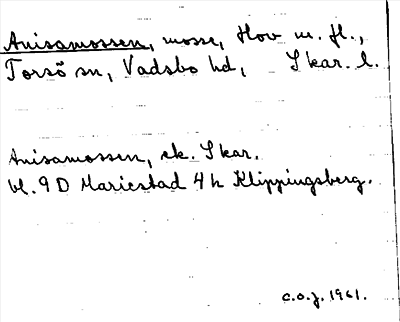 Anisamossen, mosse, Hov m. fl.,
Torsö sn, Vadsbo hd, Skar. l.
Anisamossen, ek. Skar.
bl. 9 D Mariestad 4 h Klippingsberg.
c.o.j. 1961.